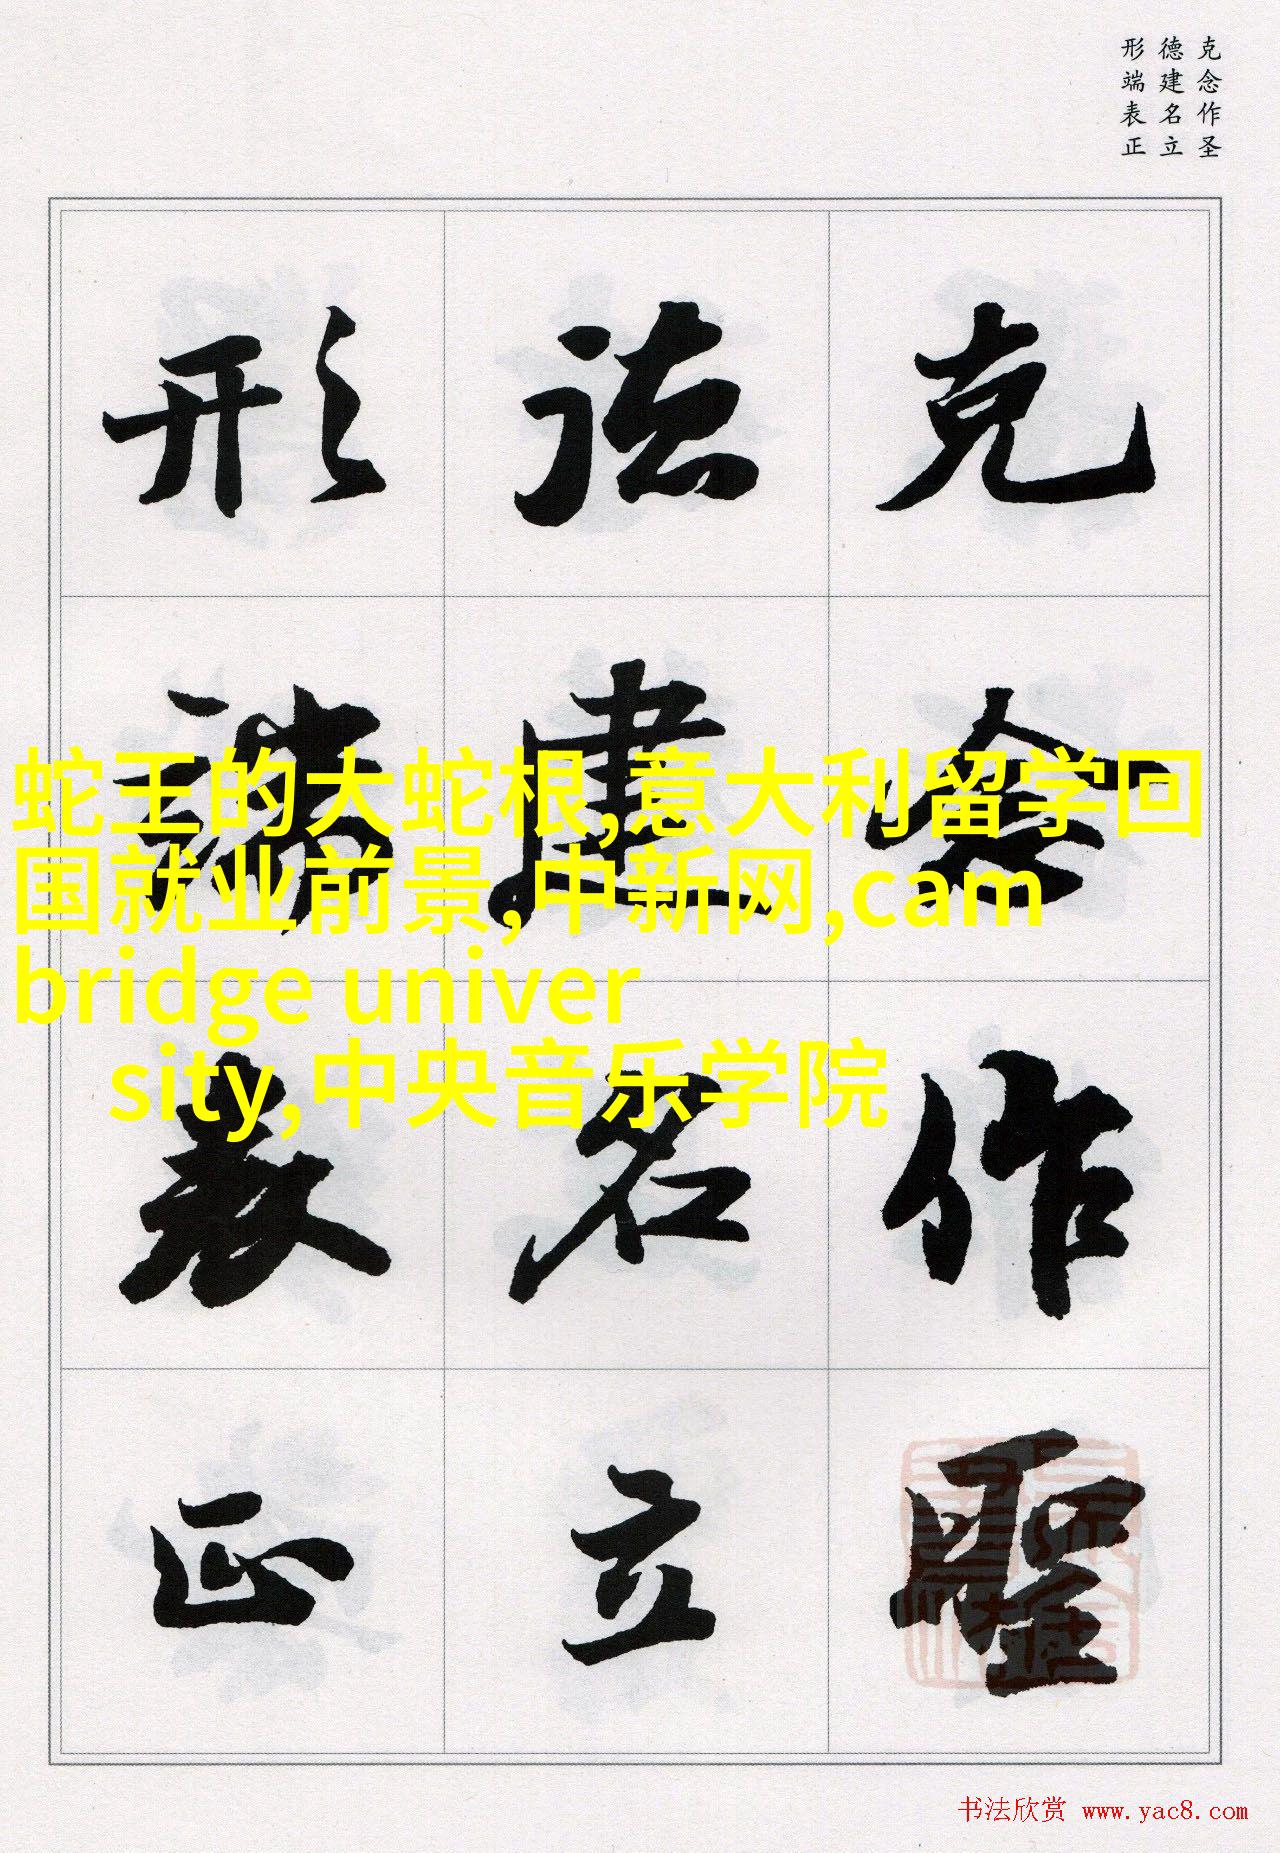 克念作圣
德建名立
形端表正
克念作聖
德建名立
形端表正
蛇王的大蛇根,意大利留学回
国就业前景,中新网,cam
bridge univer
sity,中央音乐学院
书法欣赏 www.yac8.com